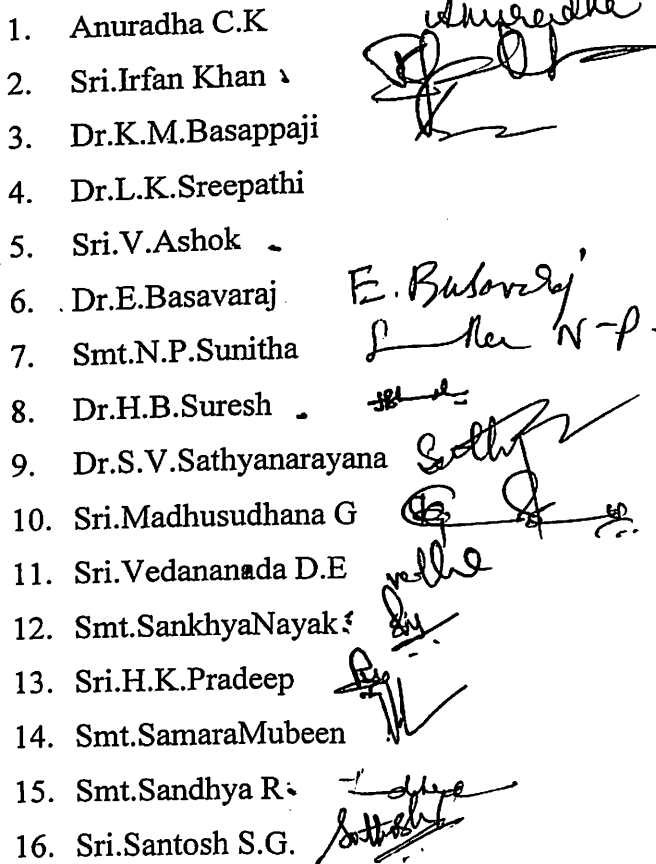 1. Anuradha C.K Anuradha
2. Sri.Irfan Khan
3. Dr.K.M.Basappaji
4. Dr.L.K.Sreepathi
5. Sri.V.Ashok
6. Dr.E.Basavaraj E. Basavaraj
7. Smt.N.P.Sunitha N-P.
8. Dr.H.B.Suresh
9. Dr.S.V.Sathyanarayana
10. Sri.Madhusudhana G
11. Sri.Vedananada D.E
12. Smt.SankhyaNayak
13. Sri.H.K.Pradeep
14. Smt.SamaraMubeen
15. Smt.Sandhya R
16. Sri.Santosh S.G. Santhosh